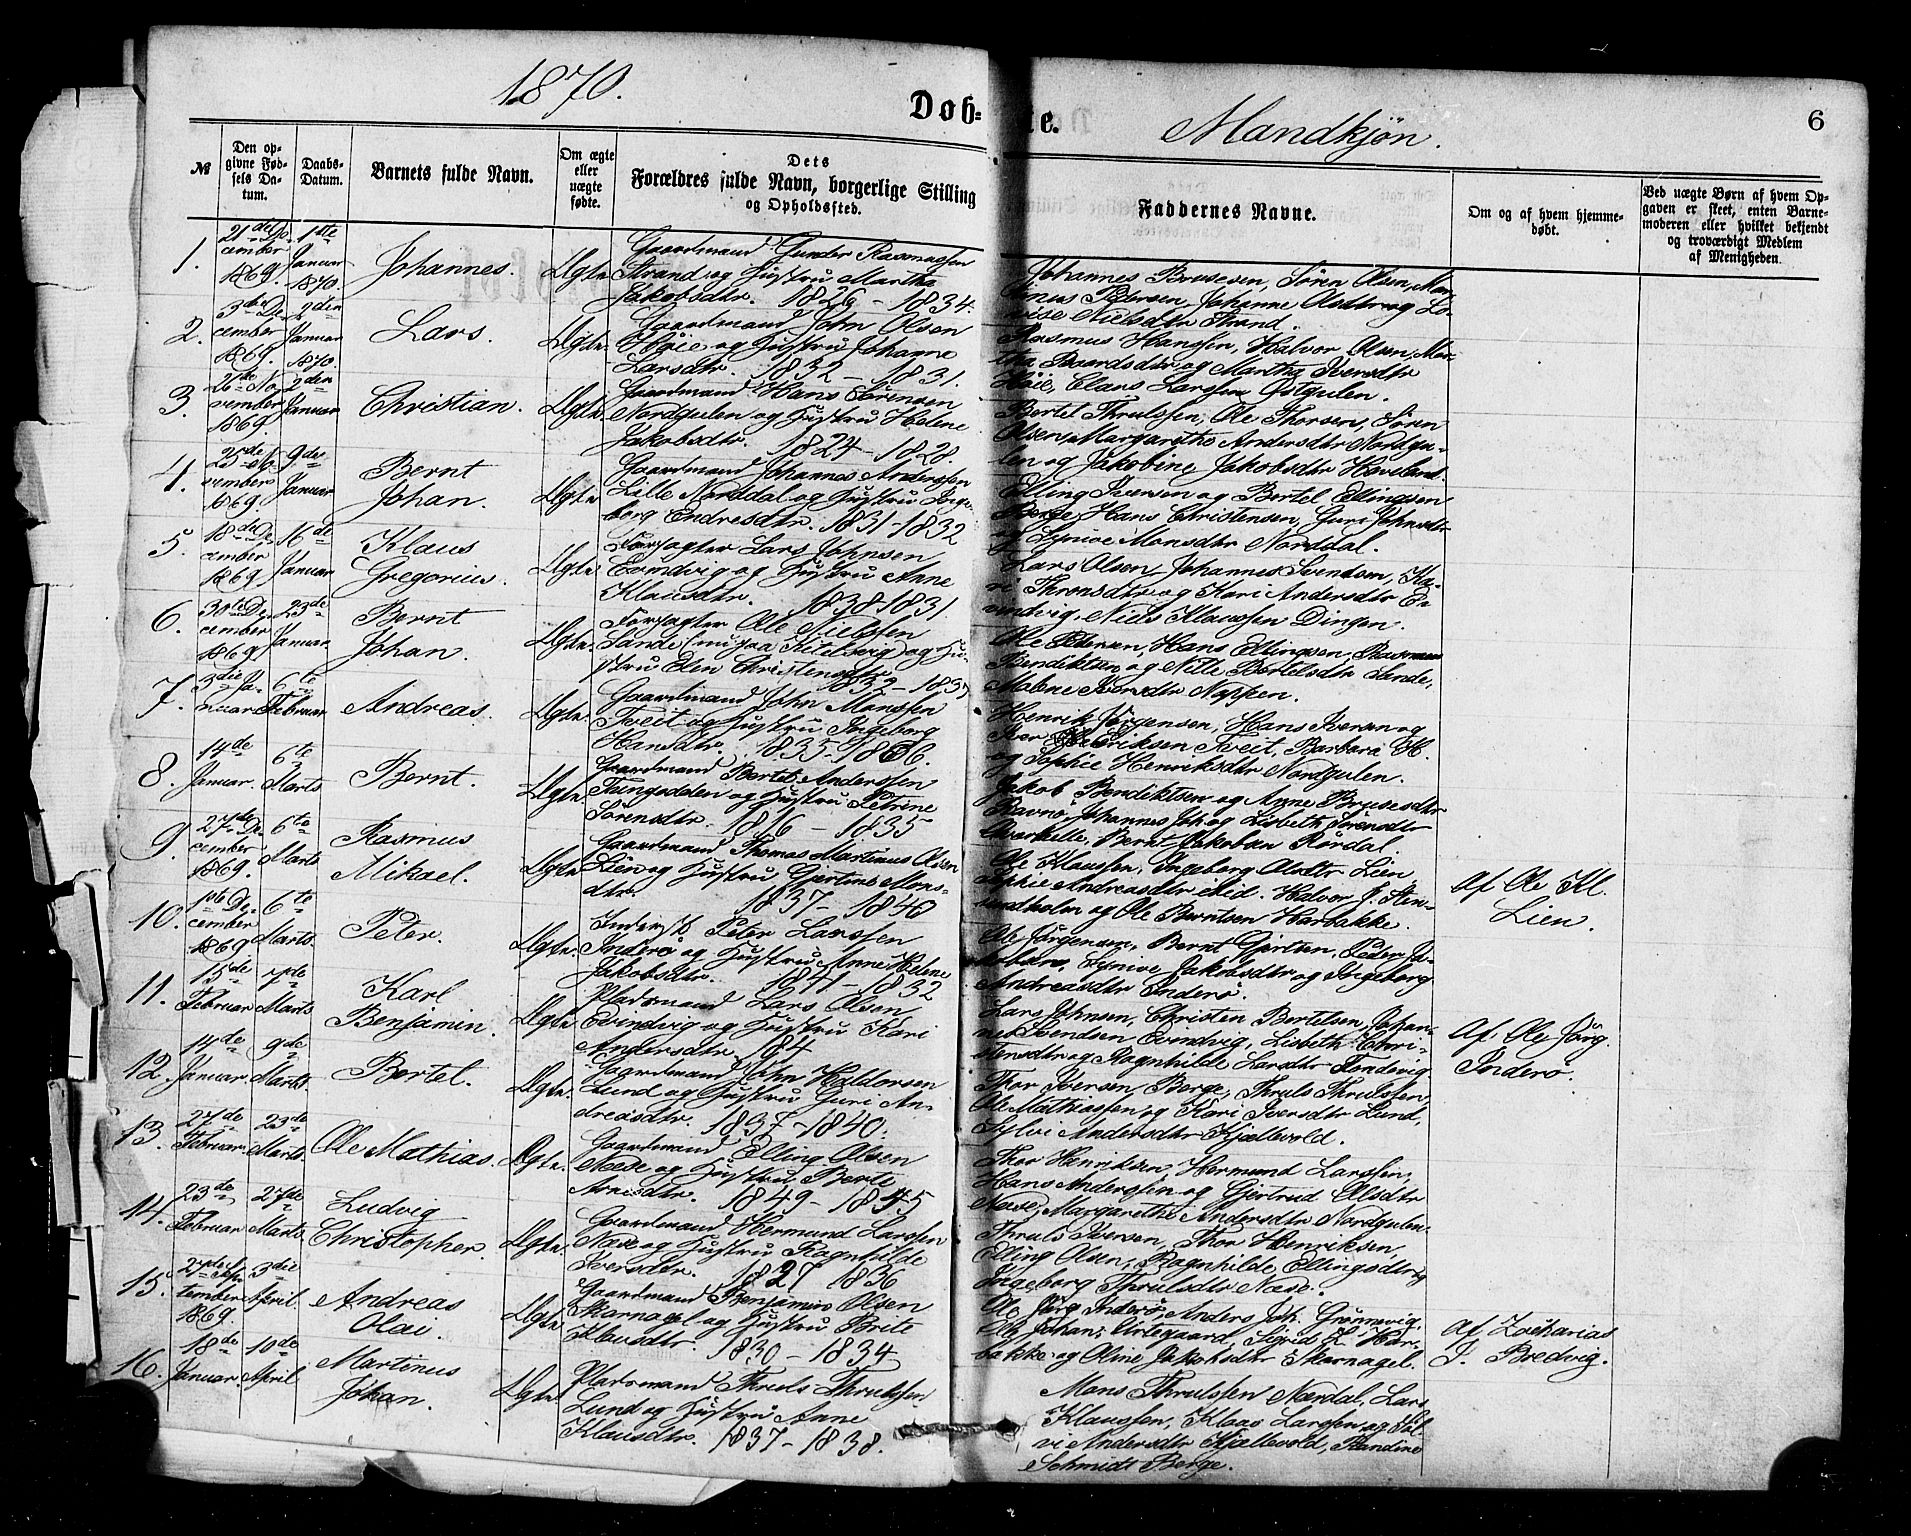 1870.
Døb-
te.
Mandkjøn.
6
№
Den op-
givne Fød-
sels Da-
tum.
Daabs-
Datum.
Barnets fulde Navn.
Om ægte
eller
uægte
fødte.
Dets
Forældres fulde Navn, borgerlige Stilling
og Opholdssted.
Faddernes Navne.
Om og af hvem hjemme-
døbt.
Ved uægte Børn af hvem Op-
gaven er skeet, enten Barne-
moderen eller hvilket bekjendt
og troværdigt Medlem
af Menigheden.
1.
21de De-
cember
1869.
1ste
Januar
1870.
Johannes.
Ægte.
Gaardmand Gunder Rasmussen
Strand og Hustru Martha
Jakobsdtr. 1826 - 1834.
Johannes Brusesen, Søren Olsen, Mar-
tinus Pedersen, Johanne Olsdtr og Lo-
vise Nielsdtr Strand.
2.
3de De-
cember
1869.
2den
Januar
1870.
Lars.
Ægte.
Gaardmand John Olsen
Høie og Hustru Johanne
Larsdtr. 1832 - 1831.
Rasmus Hanssen, Halvor Olsen, Mar-
tha Baardsdtr og Martha Iversdtr
Høie, Claus Larssen Østgulen.
3.
26de No-
vember
1869
2den
Januar
Christian.
Ægte.
Gaardmand Hans Sørensen
Nordgulen og Hustru Helene
Jakobsdtr. 1824 - 1828.
Bertel Thrulssen, Ole Thorsen, Søren
Olsen, Margarethe Andersdtr Nordgu-
len og Jakobine Jakobsdtr Haveland.
4.
25de No-
vember
1869.
9de
Januar
Bernt
Johan.
Ægte.
Gaardmand Johannes Anderssen
Lille Norddal og Hustru Inge-
borg Endresdtr. 1831-1832
Elling Iversen og Bertel Ellingsen
Berge, Hans Christensen, Guri Johnsdtr
og Synive Monsdtr Norddal.
5.
18de De-
cember
1869
16de
Januar
Klaus
Gregorius.
Ægte.
Forpagter Lars Johnsen
Evindvig og Hustru Anne
Klausdtr. 1838-1831.
Lars Olsen, Johannes Svendsen, Ka-
ri Thronsdtr og Kari Andersdtr E-
vindvig, Niels Klaussen Dingen.
6.
30te De-
cember
1869.
23de
Januar
Bernt
Johan.
Ægte.
Forpagter Ole Nielssen
Sande (nu paa Kitelsvig) og Hu-
stru Elen Christensdtr.
1832 - 1835
Ole Pedersen, Hans Ellingsen, Rasmus
Bendiktsen og Nille Bertelsdtr Sande,
Malene Iversdtr Nappen.
7.
3die Ja-
nuar
6te
Februar
Andreas.
Ægte.
Gaardmand John Monssen
Tveit og Hustru Ingeborg
Hansdtr. 1835-1836.
Henrik Jørgensen, Hans Iversen og
Iver Eriksen Tveit, Barbara H.
og Sophie Henriksdtr Nordgulen.
8.
14de
Januar.
6te
Marts
Bernt.
Ægte.
Gaardmand Bertel Anderssen
Tungodden og Hustru Petrine
Sørensdtr. 1816 - 1835
Jakob Bendiktsen og Anne Brusesdtr
Ravnø, Johannes Joh og Lisbeth Sørensdtr
Qvarkelle, Bernt Jakobsen Rørdal.
9.
27de De-
cember
1869.
6te
Marts.
Rasmus
Mikael.
Ægte.
Gaardmand Thomas Martinus Olsen
Lien og Hustru Gjertine Mons-
dtr. 1837 - 1840
Ole Klaussen, Ingeborg Olsdtr Lien,
Sophie Andreasdtr Eid. Halvor J. Sten-
sundholm og Ole Berntsen Harbakke.
Af Ole Kl.
Lien.
10.
1ste De-
cember
1869
6te
Marts.
Peter.
Ægte.
Inderst Peter Larssen
Inderø og Hustru Anne Helene
Jakobsdtr. 1841 - 1832
Ole Jørgensen, Bernt Gjertsen, Peder Ja-
kobsen, Synive Jakobsdtr og Ingeborg
Andreasdtr Inderø.
11.
15de
Februar
7de
Marts
Karl
Benjamin.
Ægte.
Pladsmand Lars Olsen
Evindvig og Hustru Kari
Andersdtr. 184
Lars Johnsen, Christen Bertelsen, Johan-
nes Svendsen Evindvig, Lisbeth Chri-
stensdtr og Ragnhilde Larsdtr Fondevig.
Af Ole Jørg.
Inderø.
12.
14de
Januar
9de
Marts.
Bertel.
Ægte.
Gaardmand John Haldorsen
Lund og Hustru Guri An-
dreasdtr. 1837-1840.
Thor Iversen Berge, Thruls Thrulsen,
Ole Mathiassen og Kari Iversdtr Lund,
Sylvi Andersdtr Kjellevold.
13.
27de
Februar
23de
Marts.
Ole Mathias.
Ægte.
Gaardmand Elling Olsen
Næse og Hustru Berte
Arnisdtr. 1849 - 1845
Thor Henriksen, Hermund Larssen,
Hans Anderssen og Gjertrud Olsdtr
Næse, Margarethe Andersdtr Nordgulen.
14.
23de
Februar
27de
Marts.
Ludvig
Christopher.
Ægte.
Gaardmand Hermund Larssen
Næse og Hustru Ragnhilde
Iversdtr. 1827 1836
Thruls Iversen, Thor Henriksen,
Elling Olsen, Ragnhilde Ellingsdtr og
Ingeborg Thrulsdtr Næse.
15.
27de Sep-
tember
1869.
3die
April.
Andreas
Olai.
Ægte.
Gaardmand Benjamin Olsen
Skarnagel og Hustru Brite
Olavsdtr. 1830 - 1834
Ole Jørg Inderø, Anders Joh. Grønnevig,
Ole Johan, Urtegaard, Sigrid L. Har-
bakke og Oline Jakobsdtr Skarnagel.
Af Zacharias
J. Bredvig.
16.
18de
Januar.
10de
April
Martinus
Johan.
Ægte.
Pladsmand Thruls Thrulssen
Lund og Hustru Anne
Klausdtr. 1837 - 1838.
Mons Thrulssen Nordal, Lars
Klaussen, Klaas Larssen og Syl-
vi Andersdtr Kjellevold, Randine
Schmidt Berge.